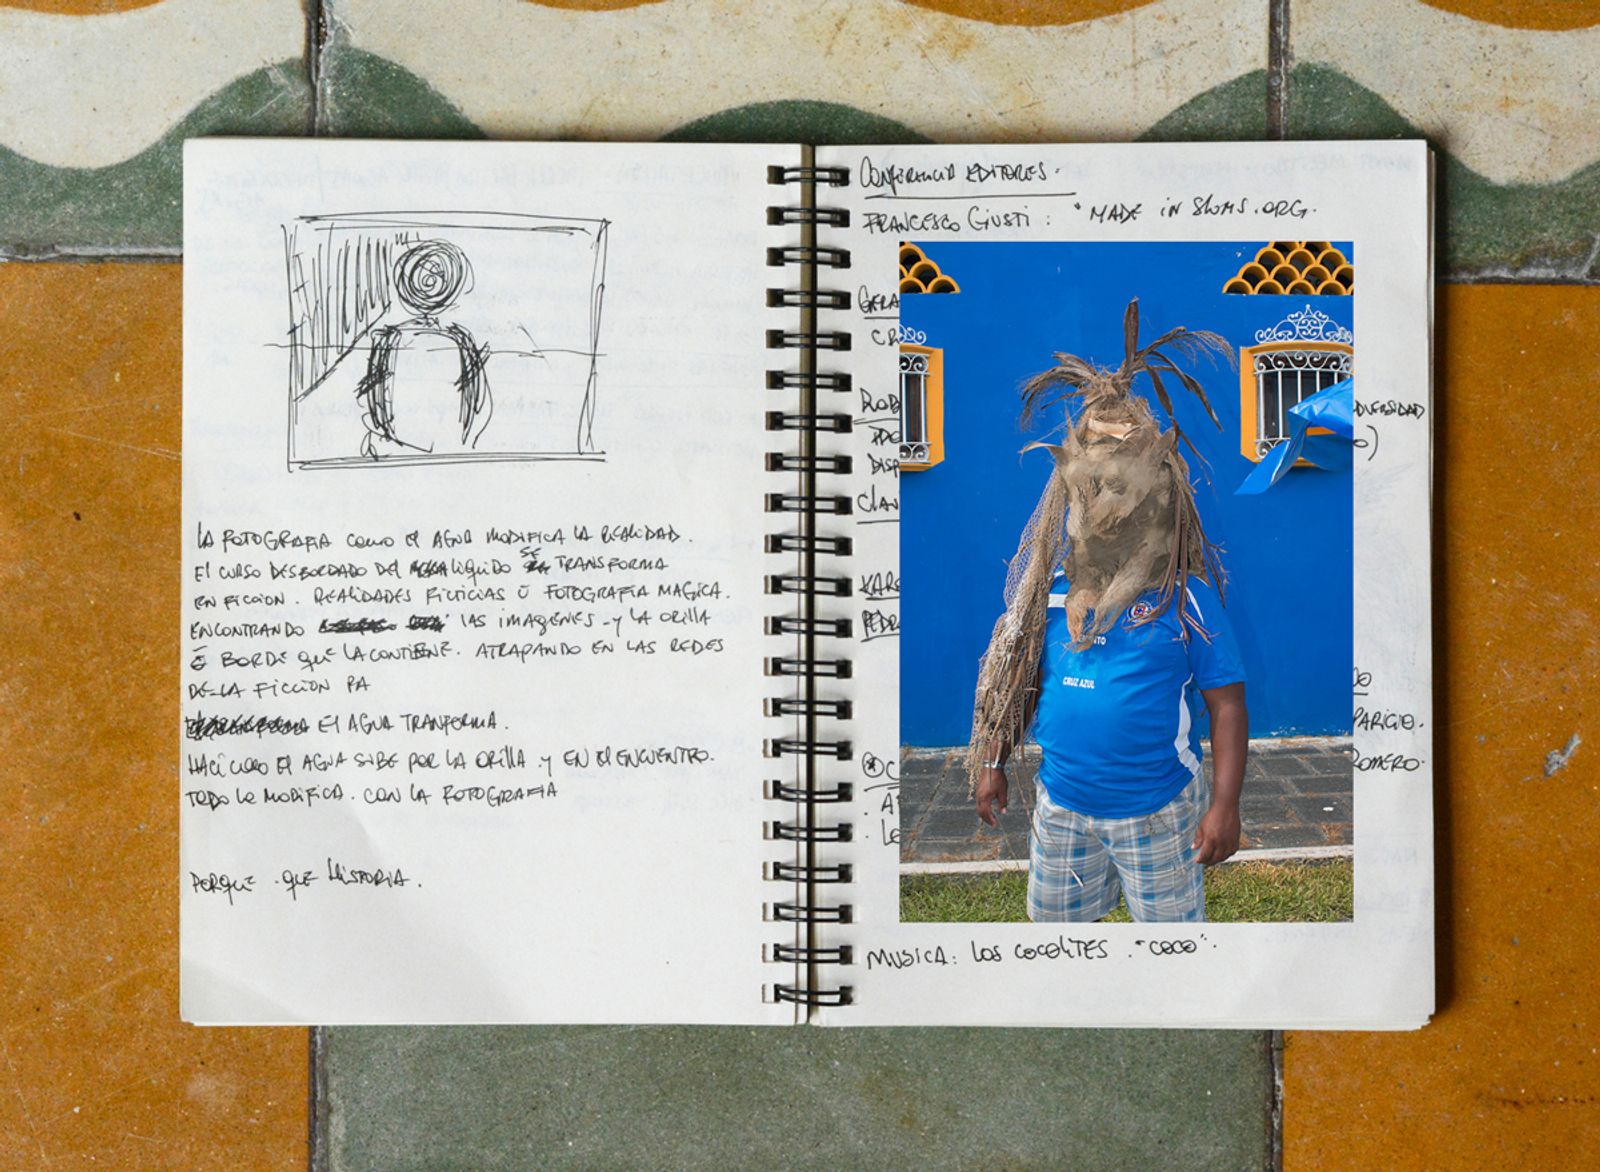 LA FOTOGRAFIA COMO EL AGUA MODIFICA LA REALIDAD.
EL CURSO DESBORDADO DEL LIQUIDO SE TRANSFORMA
EN FICCION. REALIDADES FICTICIAS Ū FOTOGRAFIA MAGICA.
ENCONTRANDO LAS IMAGENES - Y LA ORILLA
Ō BORDE QUE LA CONTIENE. ATRAPANDO EN LAS REDES
DE LA FICCION PA
EL AGUA TRANFORMA.
HACI COMO EL AGUA SUBE POR LA ORILLA Y EN EL ENCUENTRO.
TODO LO MODIFICA. CON LA FOTOGRAFIA
PORQUE . QUE HISTORIA.
CONFERENCIA EDITORES.
FRANCESCO GIUSTI: "MADE IN SLUMS.ORG.
GERA
CR
ROB
DIVERSIDAD
DISP
CLAU
KAR
PEDR
CRUZ AZUL
PARICIO.
ROMERO.
MUSICA: LOS COCOLITES. "COCO".